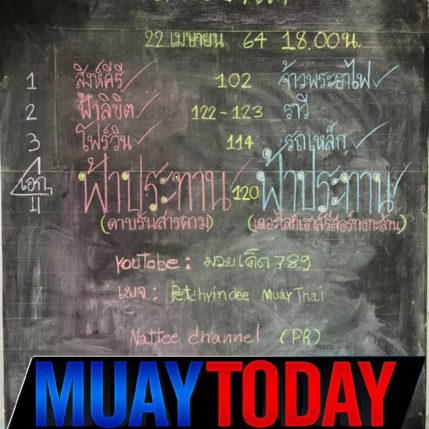 22 เมษายน 64 18.00น.
1 สิงห์คีรี ✓ 102 จ้าวพระยาไฟ ✓
2 ฟ้าลิขิต ✓ 122-123 ราวี
3 โฟร์วิน ✓ 114 รถเหล็ก ✓
เอก ฟ้าประทาน ✓ 120 ฟ้าประทาน ✓
4
(ดาบรันสารคาม)
YouTube : มวยเด็ด789
เพจ : Petchyindee Muay Thai
Nattee channel (PR)
MUAY TODAY